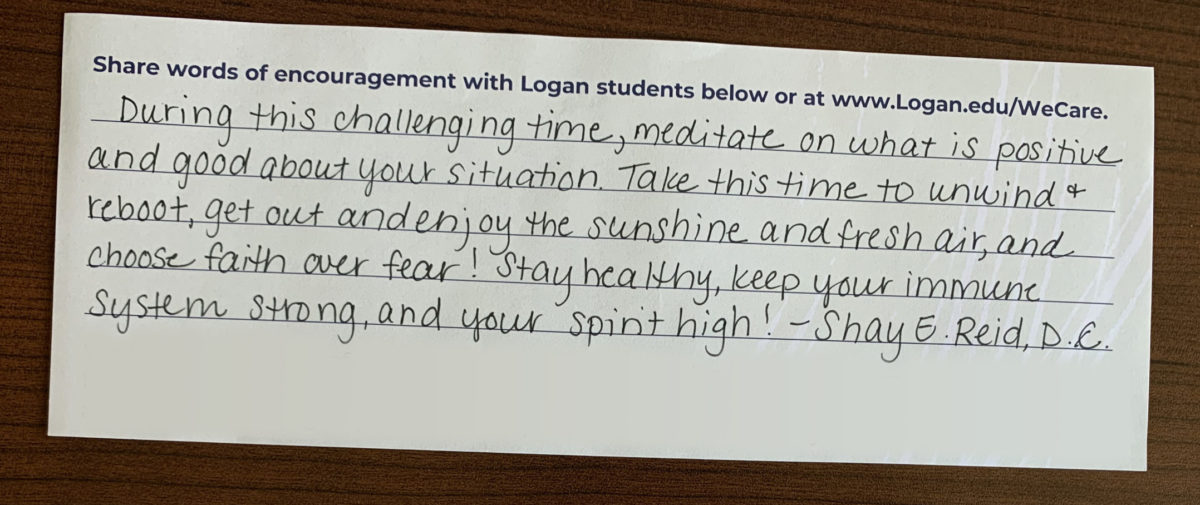 Share words of encouragement with Logan students below or at www.Logan.edu/WeCare.
During this challenging time, meditate on what is positive
and good about your situation. Take this time to unwind &
reboot, get out and enjoy the sunshine and fresh air, and
choose faith over fear! Stay healthy, keep your immune
system strong, and your spirit high! - Shay E. Reid, D.C.